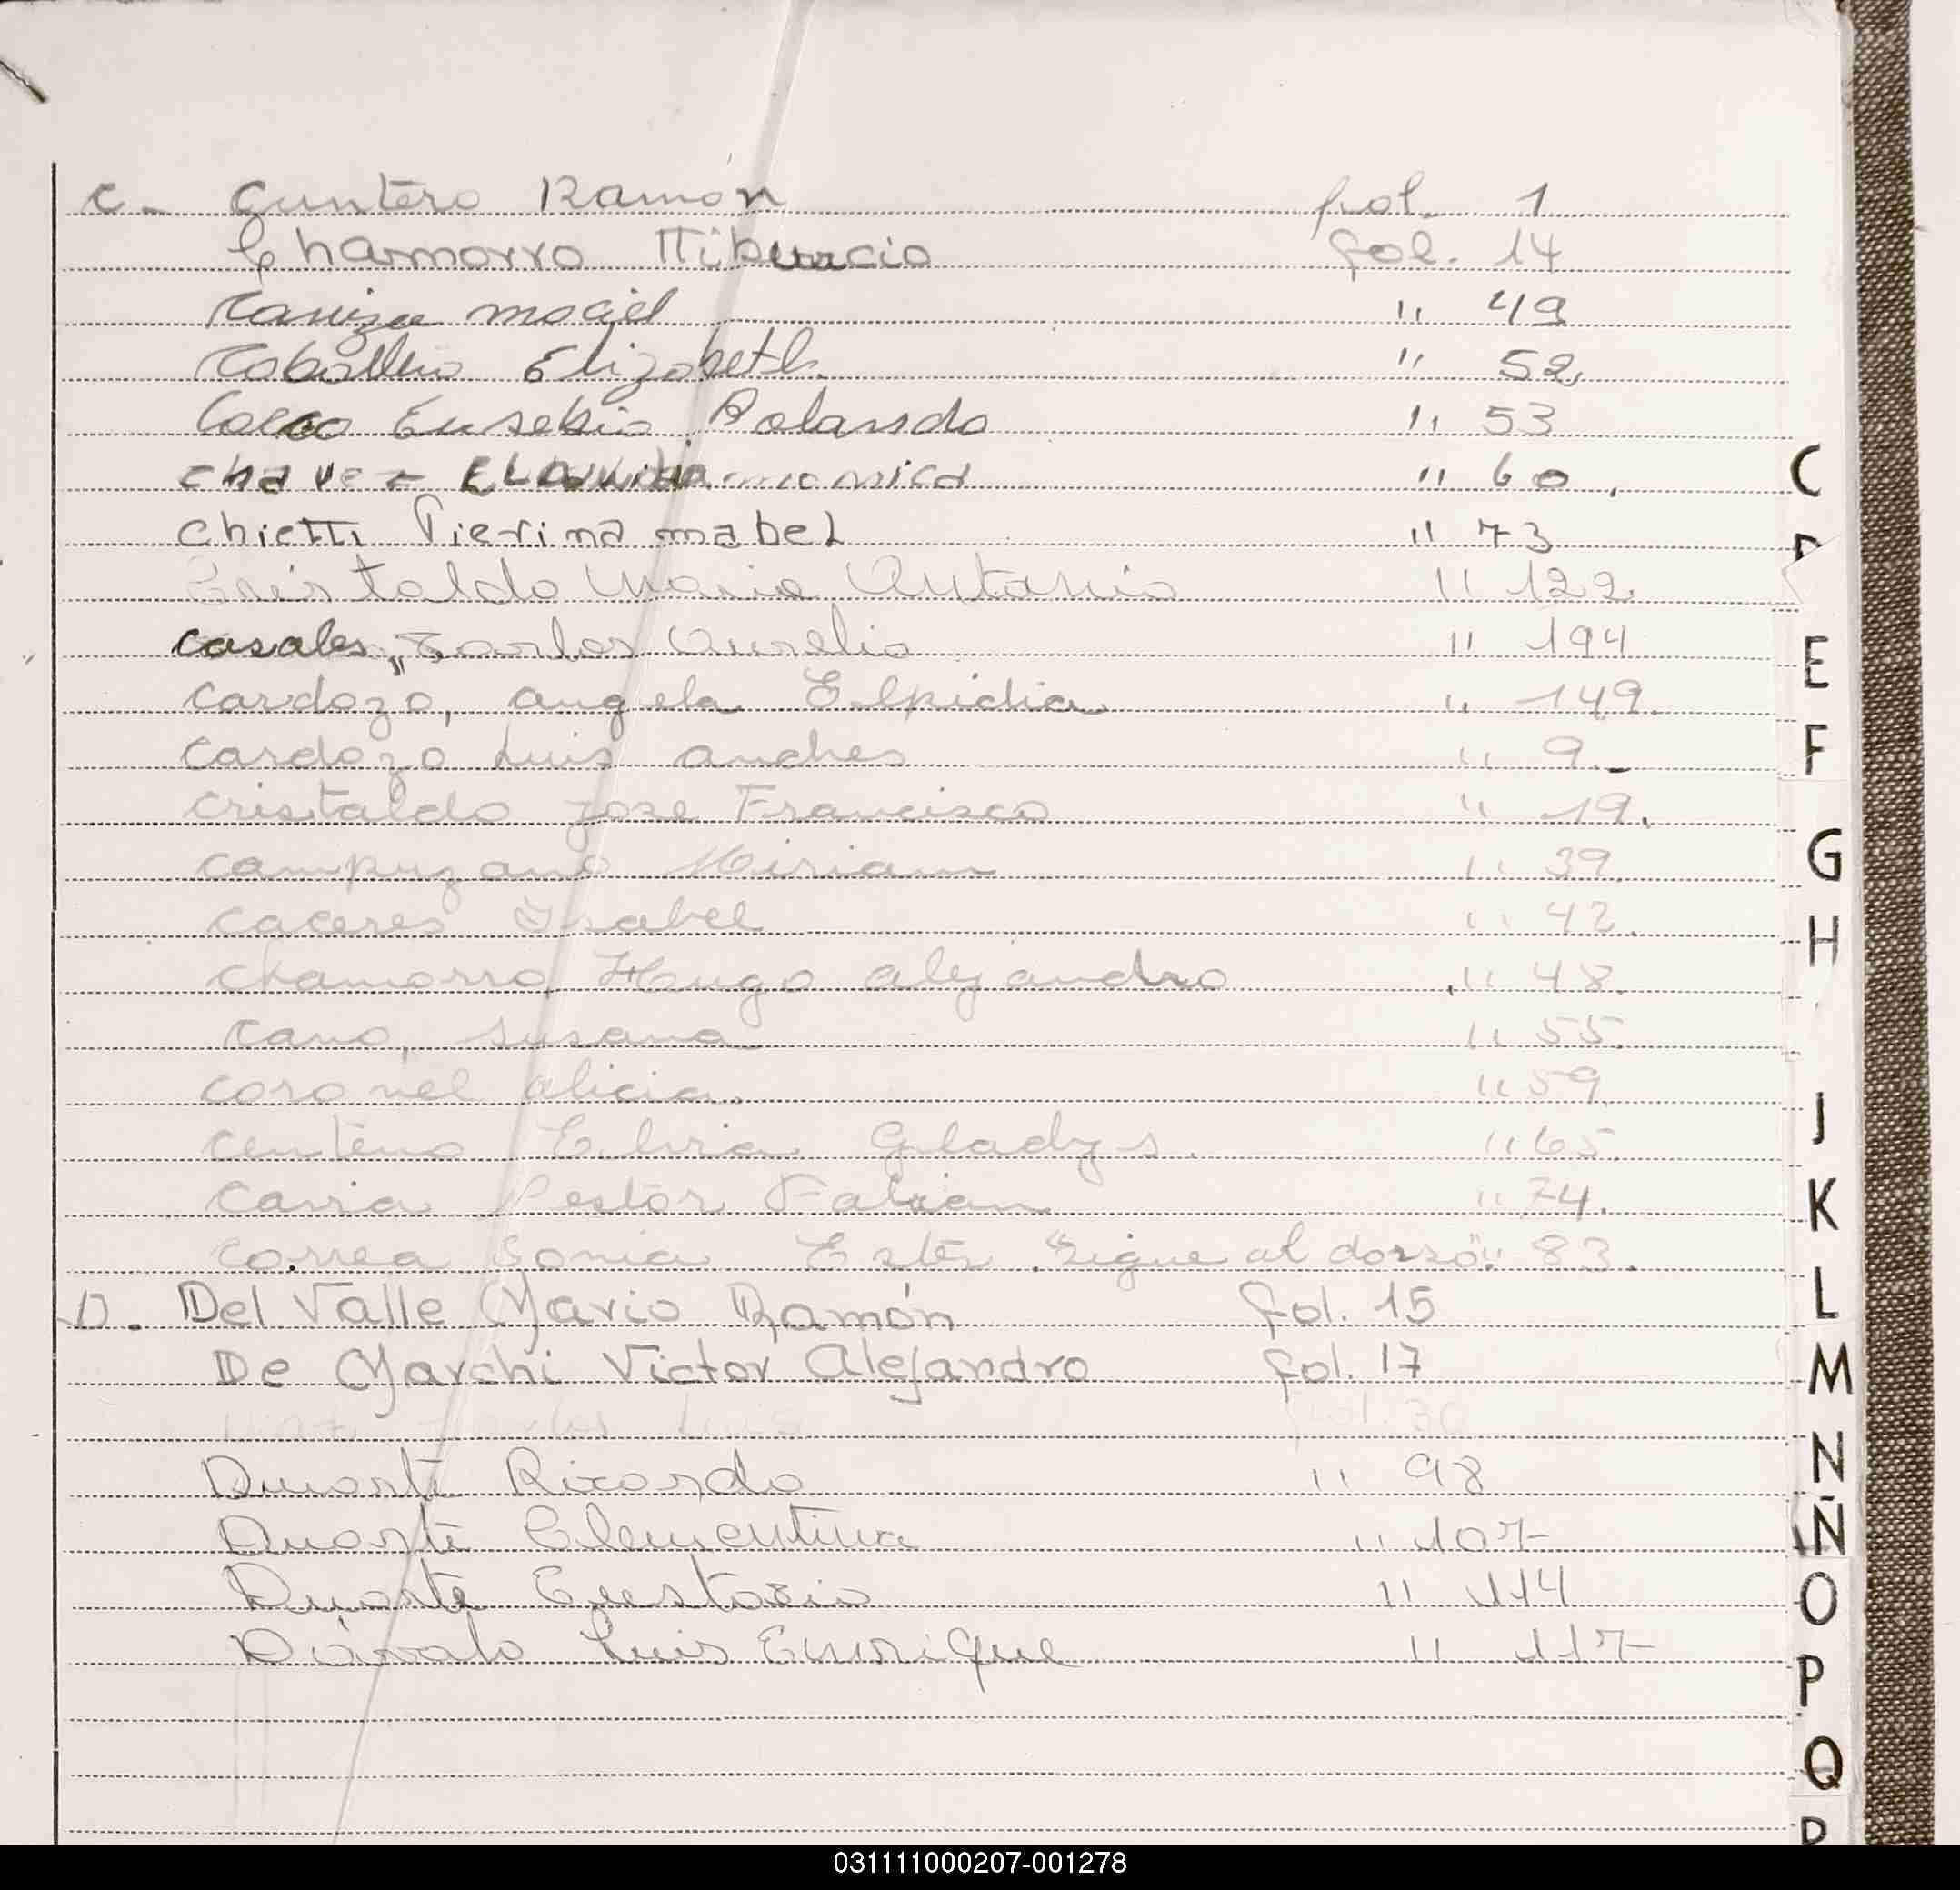 C. Cuntero Ramón fol. 1
Chamorro Tiburcio fol. 14
Maciel " 49
Elizabeth " 52
Cocco Eusebio Rolando " 53
Chavez Monica " 60
Chietti Pierina Mabel " 73
Cristaldo Maria Antonia " 122
Casales, Carlos Aurelio " 194
Cardozo, Angela Elpidia " 149.
Cardozo Luis Andres " 9.-
Cristaldo Jose Francisco " 19.
Campuzano Miriam " 39.
Caceres Ysabel " 42.
Chamorro Hugo Alejandro " 48.
Cano, Susana " 55.
Coronel Alicia. " 59.
Centeno Elvia Gladys. " 65.
Nestor Fabian " 74.
Correa Sonia Ester. "Sigue al dorso" " 83.
D. Del Valle Mario Ramón fol. 15
De Marchi Victor Alejandro fol. 17
Luis fol. 30
Duarte Ricardo " 98
Duarte Clementina " 107
Duarte Eustacio " 114
Luis Enrique " 117
C
E
F
G
H
J
K
L
M
N
Ñ
O
P
Q
031111000207-001278